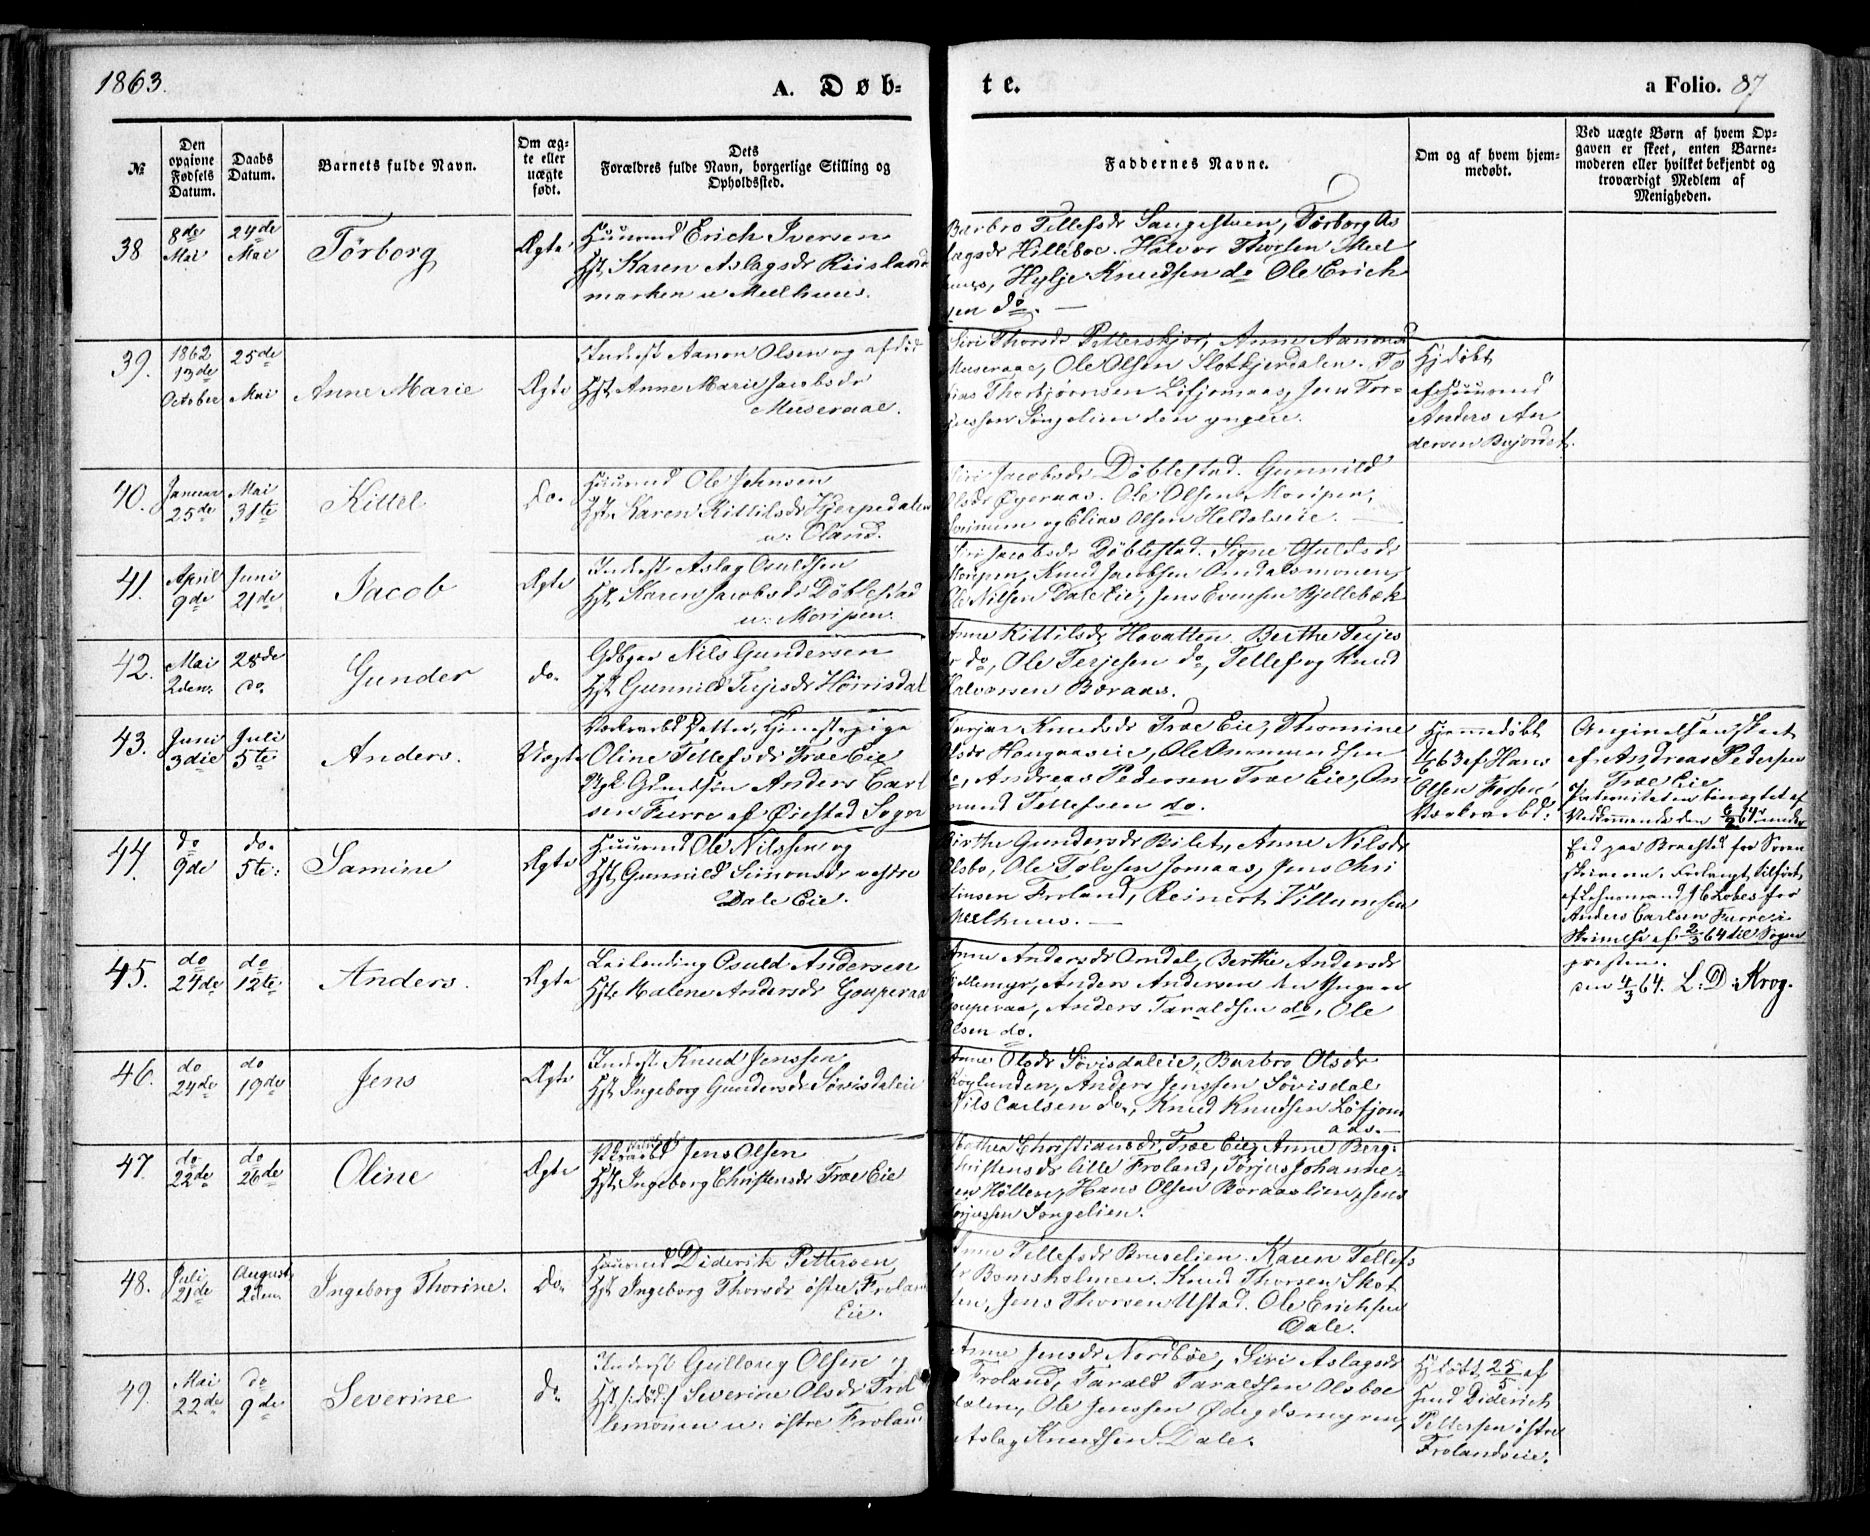 1863.
A. Døb-
te.
a Folio. 87
№
Den opgivne Fødsels Datum.
Daabs Datum.
Barnets fulde Navn.
Om ægte eller uægte født.
Dets Forældres fulde Navn, borgerlige Stilling og Opholdssted.
Faddernes Navne.
Om og af hvem hjemmedøbt.
Ved uægte Børn af hvem Opgaven er skeet, enten Barnemoderen eller hvilket bekjendt og troværdigt Medlem af Menigheden.
38
8de Mai
24de Mai
Törborg
Ægte
Huusmd Erich Iversen
Hst. Karen Aslagsdr Riisland
marken u Mælhuus.
Barbro Tellefsdr Sangesteen, Törborg As
lagsdr Hilleböe. Halvor Thorsen Meel
huus, Hylje Knudsen do Ole Erich
sen do.
39.
1862 13de October
25de Mai
Anne Marie
Ægte
Inderst Aanon Olsen og afdöd
Hst. Anne Marie Jacobsdr
Museraae.
Siri Thorsdr Petterskjær, Anne Aanonsd
Museraae, Ole Olsen Slotkjerdalen. To
bias Thorbjørnsen Lifjomaas, Jens Tor-
jussen Songelien den yngere.
Hjdøbt
af Huusmd
Anders An
dersen
40.
Januar 25de
Mai 31te
Kittel
Do.
Huusmd Ole Johnsen
Hst. Karen Kittilsdr Kjerpedalen
u: Oland.
Siri Jacobsdr Döblestad. Gunnild
Olsdr Øyeraas. Ole Olsen Moripen,
og Elias Olsen Heldalseie.
41.
April 9de
Juni 21de
Jacob
Ægte
Inderst Aslag Osuldsen
Hst Karen Jacobsdr Döblestad
u: Moripen.
Siri Jacobsdr Döblestad. Signe Osuldsdr
Moripen, Knud Jacobsen Omdalsmonen,
Ole Nilsen Dale Eie, Jens Evensen Bjellebæk
42.
Mai 2den
28de do
Gunder
do.
Gdbgr Nils Gundersen
Hst Gunnild Terjesdr Hörrisdal
Anne Kittilsdr Hovatten. Berthe Terjes
dr do, Ole Terjesen do, Tellef og Knud
Halvorsen Boraas.
43.
Juni 3die
Juli 5te
Anders.
Uægte
Datter, Tjenestepige
Oline Tellefsdr Træe Eie
Ugk Gmdsön Anders Carl
sen Furre af Øiestad Sogn
Tarjer Knudsdr Træe Eie, Thomine
Olsdr Haugaaseie, Ole Ommundsen
do, Andreas Pedersen Træe Eie, Om
mund Tellefsen do.
Hjemmedøbt
4/6 63 af Hans
Olsen Fossen
Angivelsen skeet
af Andreas Pedersen
Træe Eie
Paterniteten benægtet af
Vedkommende den 6/2 64 under
Eed paa Braastad for Soren
skriveren. Forlangt tilført
af Lensmand J C Lobes for
Anders Carlsen Furre i
Skrivelse af 2/3 64 til Sogne
presten.
den 4/3 64. L: D: Krog.
44.
do 9de
do. 5te:
Samine
Ægte
Huusmd Ole Nilssen og
Hst Gunnild Simonsdr vestre
Dale Eie.
Birthe Gundersdr Bilet, Anne Nilsdr
Olsbo, Ole Tolvsen Jomaas, Jens Chri
stinsen Froland, Reinert Villumsen
Mælhuus.
45.
do 24de
do 12te
Anders.
Ægte
Leilending Osuld Andersen
Hst Malene Andersdr Gouperaa
Anne Andersdr Omdal, Berthe Andersdr
Hellemyr, Anders Andersen den Yngre
Gouperaa, Anders Taraldsen do, Ole
Olsen do.
46.
do 24de
do 19de
Jens
Ægte
Inderst Knud Jenssen
Hst Ingeborg Gundersdr Sövisdaleie
Anne Olsdr Sövisdaleie, Barbro Olsdr
Röglunden, Anders Jenssen Sövisdal
Nils Carlsen do, Knud Knudsen Löfjom
aas.
47.
do 22de
do 26de
Oline
Ægte
Jens Olsen
Hst Ingeborg Christensdr Træe Eie
Dorthea Christiansdr Træe Eie, Anne Berg-
Kristensdr lille Froland, Törjus Johanne-
sen Höllen, Hans Olsen Boraaslien, Jens
Torjussen Songelien.
48.
Juli 21de
August 2den
Ingeborg Thorine.
Do.
Huusmd Diderik Pettersen
Hst Ingeborg Thorsdr östre Froland
Eie.
Anne Tellefsdr Bruselien. Karen Tellefs
dr Bomsholmen. Knud Thorsen Skot
ten, Jens Thorsen Ustad. Ole Erichsen
Dale.
49.
Mai 22de
do 9de
Severine
do.
Inderst Gulloug Olsen og
Hst (död) Severine Olsdr
monen u. östre Froland
Anne Jensdr Nordböe, Siri Aslagsdr
Froland, Tarald Taraldsen Olsboe
dalen, Ole Jenssen Ödegdsmyren,
Aslag Knudsen Dale.
Hjdöbt 25/5 af
Hmd Diderich
Pettersen östre
Frolandseie.